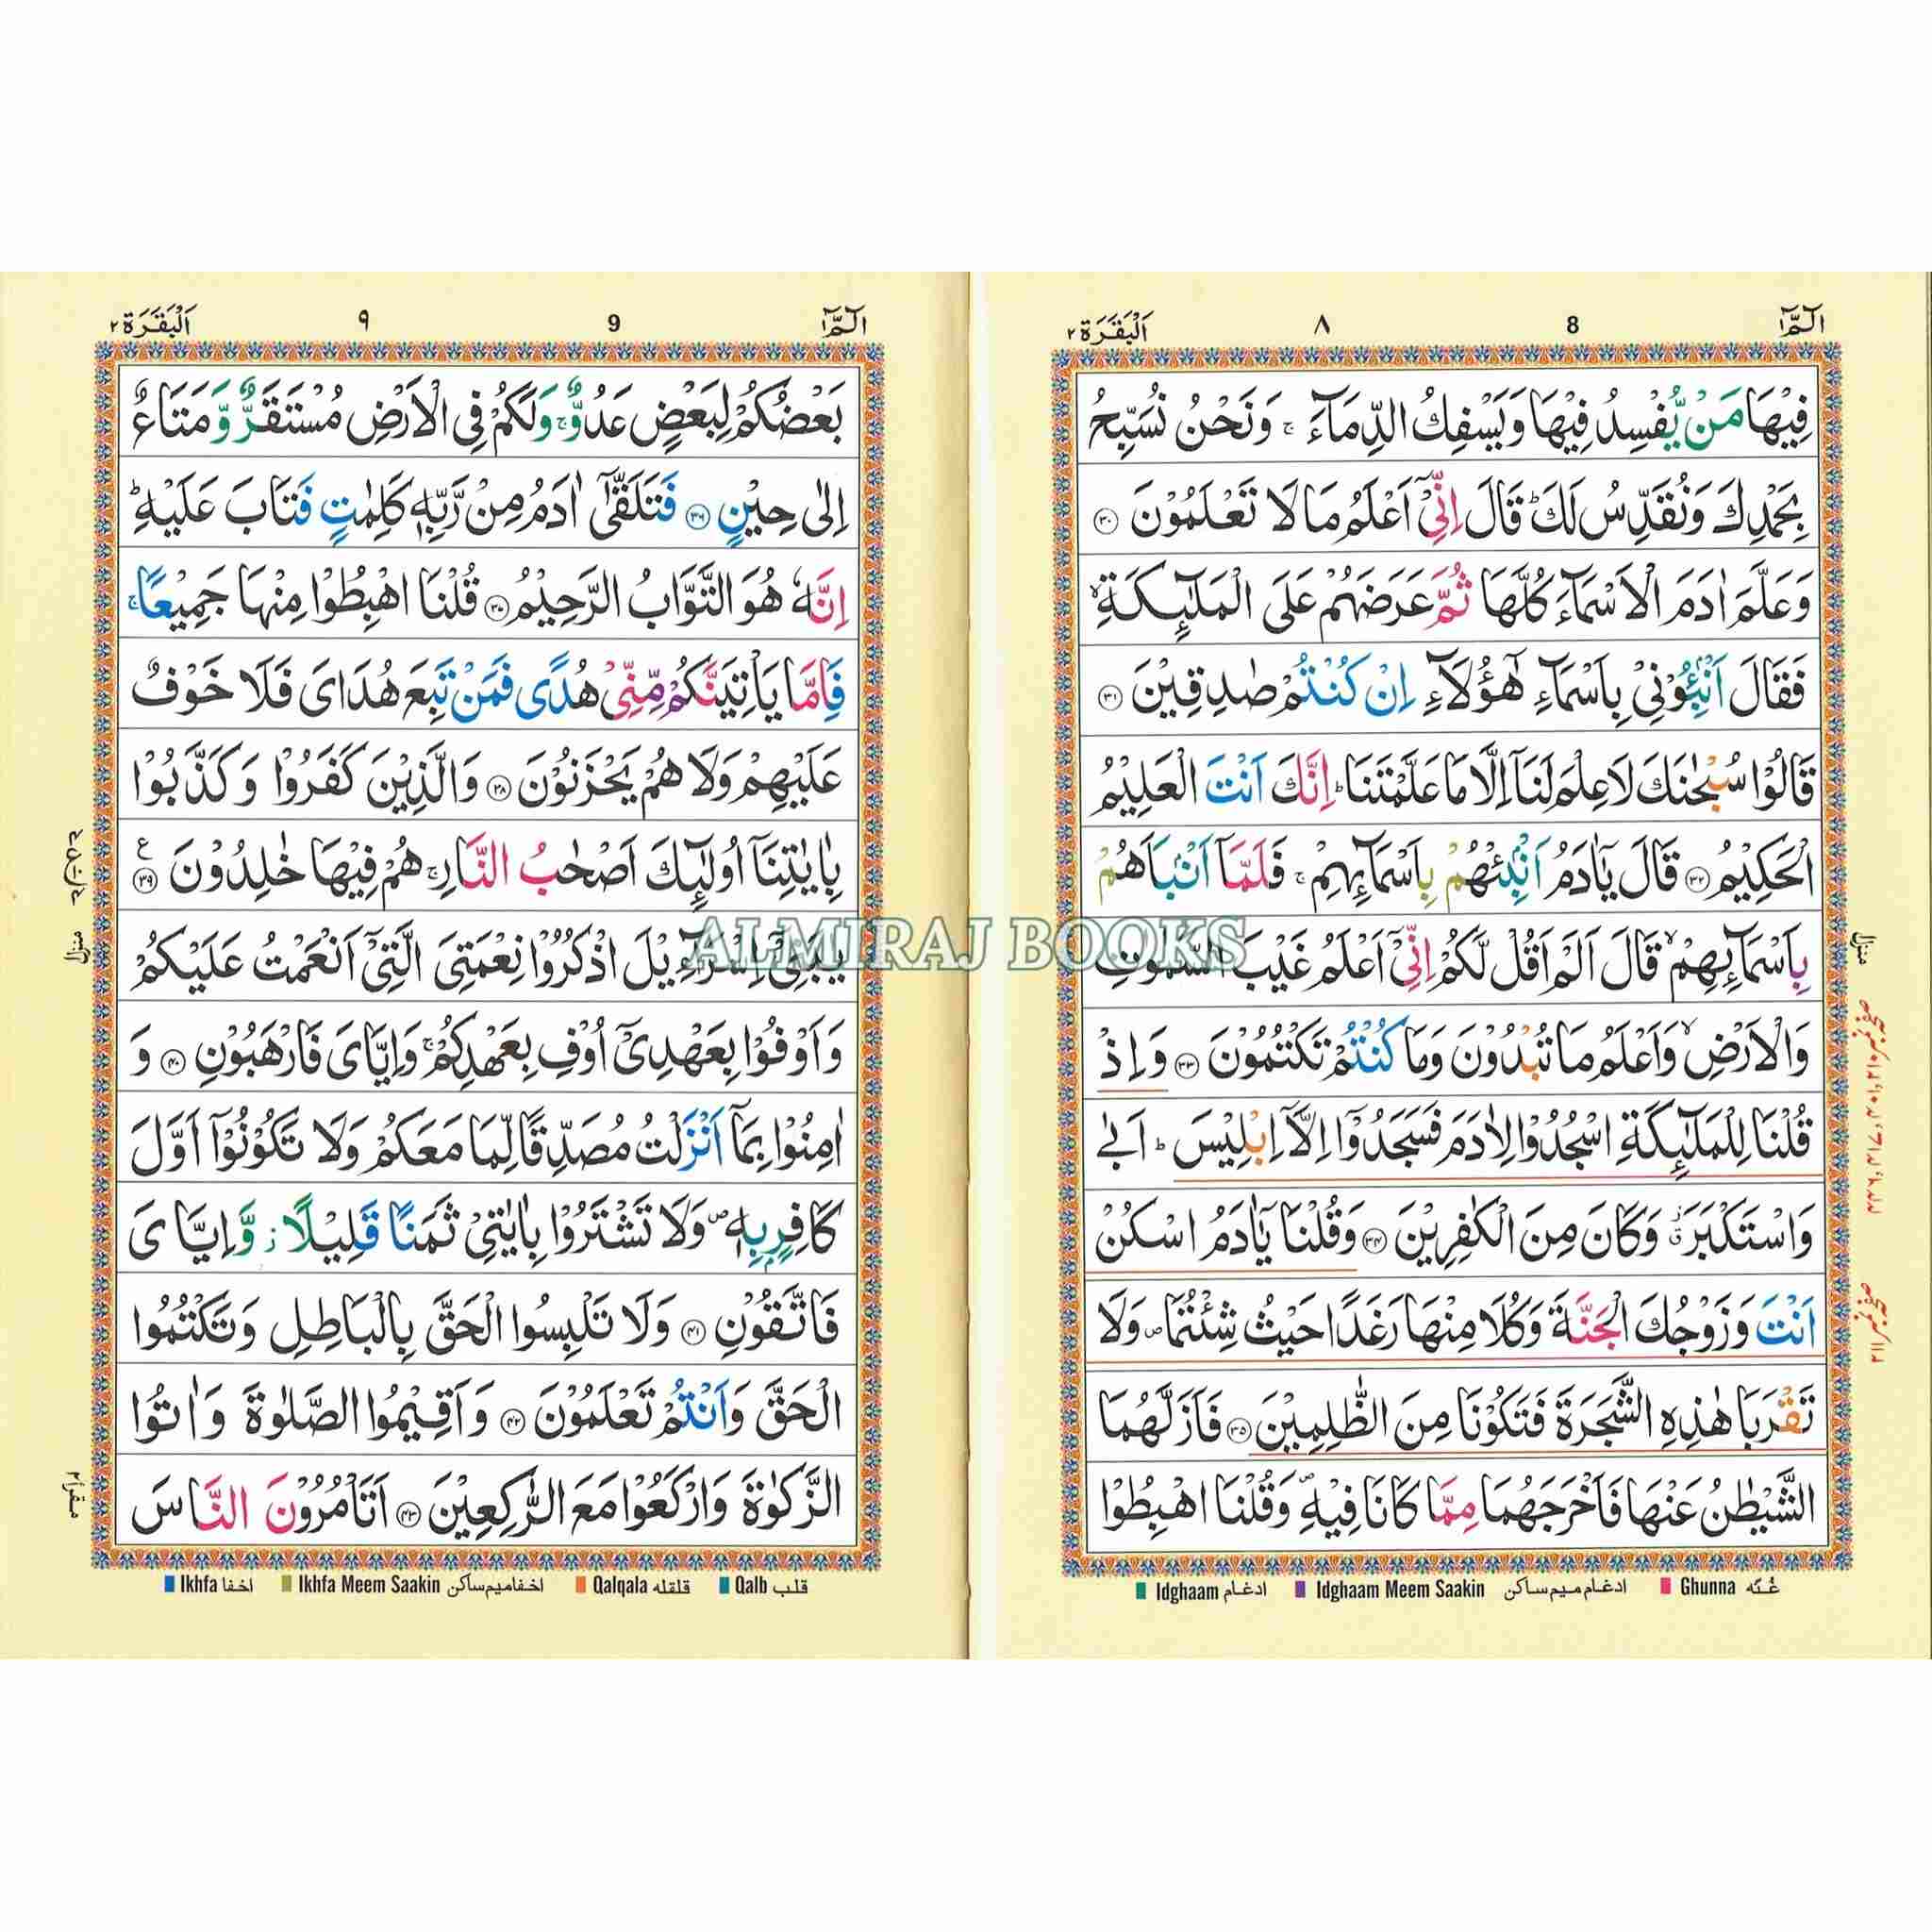 الٓمّٓ ١
8
٨
اَلْبَقَرَة ٢
فِيْهَا مَنْ يُّفْسِدُ فِيْهَا وَيَسْفِكُ الدِّمَآءَ ۚ وَنَحْنُ نُسَبِّحُ
بِحَمْدِكَ وَنُقَدِّسُ لَكَ ؕ قَالَ اِنِّىْٓ اَعْلَمُ مَا لَا تَعْلَمُوْنَ ۝۳۰
وَعَلَّمَ اٰدَمَ الْاَسْمَآءَ كُلَّهَا ثُمَّ عَرَضَهُمْ عَلَى الْمَلٰٓئِكَةِ ۙ
فَقَالَ اَنْۢبِـُٔوْنِىْ بِاَسْمَآءِ هٰٓؤُلَآءِ اِنْ كُنْتُمْ صٰدِقِيْنَ ۝۳۱
قَالُوْا سُبْحٰنَكَ لَا عِلْمَ لَنَآ اِلَّا مَا عَلَّمْتَنَا ؕ اِنَّكَ اَنْتَ الْعَلِيْمُ
الْحَكِيْمُ ۝۳۲ قَالَ يٰٓاٰدَمُ اَنْۢبِئْهُمْ بِاَسْمَآئِهِمْ ۚ فَلَمَّآ اَنْۢبَاَهُمْ
بِاَسْمَآئِهِمْ ۙ قَالَ اَلَمْ اَقُلْ لَّكُمْ اِنِّىْٓ اَعْلَمُ غَيْبَ السَّمٰوٰتِ
وَالْاَرْضِ ۙ وَاَعْلَمُ مَا تُبْدُوْنَ وَمَا كُنْتُمْ تَكْتُمُوْنَ ۝۳۳ وَاِذْ
قُلْنَا لِلْمَلٰٓئِكَةِ اسْجُدُوْا لِاٰدَمَ فَسَجَدُوْٓا اِلَّآ اِبْلِيْسَ ؕ اَبٰى
وَاسْتَكْبَرَ ۗ وَكَانَ مِنَ الْكٰفِرِيْنَ ۝۳۴ وَقُلْنَا يٰٓاٰدَمُ اسْكُنْ
اَنْتَ وَزَوْجُكَ الْجَنَّةَ وَكُلَا مِنْهَا رَغَدًا حَيْثُ شِئْتُمَا ۪ وَلَا
تَقْرَبَا هٰذِهِ الشَّجَرَةَ فَتَكُوْنَا مِنَ الظّٰلِمِيْنَ ۝۳۵ فَاَزَلَّهُمَا
الشَّيْطٰنُ عَنْهَا فَاَخْرَجَهُمَا مِمَّا كَانَا فِيْهِ ۪ وَقُلْنَا اهْبِطُوْا
Idghaam ادغام Idghaam Meem Saakin ادغام میم ساکن Ghunna غُنّه
منزل
الٓمّٓ ١
9
٩
اَلْبَقَرَة ٢
بَعْضُكُمْ لِبَعْضٍ عَدُوٌّ ۚ وَلَكُمْ فِى الْاَرْضِ مُسْتَقَرٌّ وَّمَتَاعٌ
اِلٰى حِيْنٍ ۝۳۶ فَتَلَقّٰٓى اٰدَمُ مِنْ رَّبِّهٖ كَلِمٰتٍ فَتَابَ عَلَيْهِ ؕ
اِنَّهٗ هُوَ التَّوَّابُ الرَّحِيْمُ ۝۳۷ قُلْنَا اهْبِطُوْا مِنْهَا جَمِيْعًا ۚ
فَاِمَّا يَاْتِيَنَّكُمْ مِّنِّىْ هُدًى فَمَنْ تَبِعَ هُدَاىَ فَلَا خَوْفٌ
عَلَيْهِمْ وَلَا هُمْ يَحْزَنُوْنَ ۝۳۸ وَالَّذِيْنَ كَفَرُوْا وَكَذَّبُوْا
بِاٰيٰتِنَآ اُولٰٓئِكَ اَصْحٰبُ النَّارِ ۚ هُمْ فِيْهَا خٰلِدُوْنَ ۝۳۹ ع
يٰبَنِىْٓ اِسْرَآءِيْلَ اذْكُرُوْا نِعْمَتِىَ الَّتِىْٓ اَنْعَمْتُ عَلَيْكُمْ
وَاَوْفُوْا بِعَهْدِىْٓ اُوْفِ بِعَهْدِكُمْ ۚ وَاِيَّاىَ فَارْهَبُوْنِ ۝۴۰ وَ
اٰمِنُوْا بِمَآ اَنْزَلْتُ مُصَدِّقًا لِّمَا مَعَكُمْ وَلَا تَكُوْنُوْٓا اَوَّلَ
كَافِرٍۢ بِهٖ ۪ وَلَا تَشْتَرُوْا بِاٰيٰتِىْ ثَمَنًا قَلِيْلًا ؗ وَّاِيَّاىَ
فَاتَّقُوْنِ ۝۴۱ وَلَا تَلْبِسُوا الْحَقَّ بِالْبَاطِلِ وَتَكْتُمُوا
الْحَقَّ وَاَنْتُمْ تَعْلَمُوْنَ ۝۴۲ وَاَقِيْمُوا الصَّلٰوةَ وَاٰتُوا
الزَّكٰوةَ وَارْكَعُوْا مَعَ الرّٰكِعِيْنَ ۝۴۳ اَتَاْمُرُوْنَ النَّاسَ
Ikhfa اخفا Ikhfa Meem Saakin اخفا میم ساکن Qalqala قلقله Qalb قلب
ALMIRAJ BOOKS